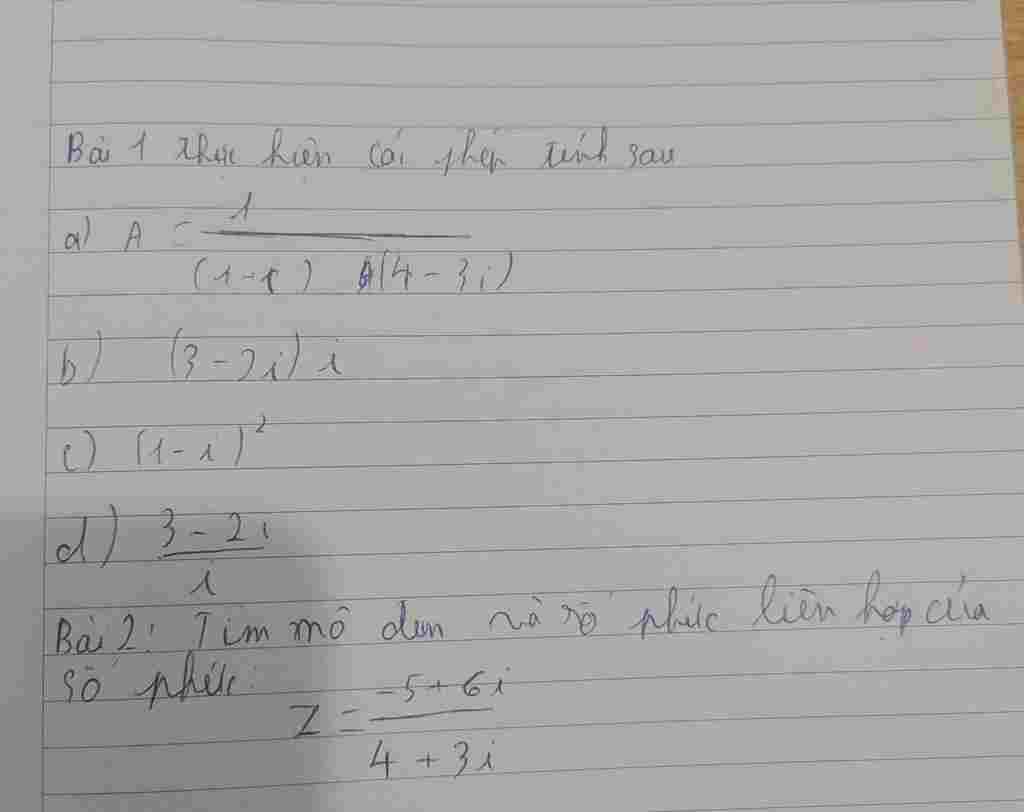 Bài 1 thực hiện cái phép tính sau
a) A = 1 / (1-i) (4-3i)
b) (3-2i) i
c) (1-i)²
d) 3-2i / i
Bài 2: Tìm mô đun và số phức liên hợp của
số phức:
Z = -5+6i / 4+3i